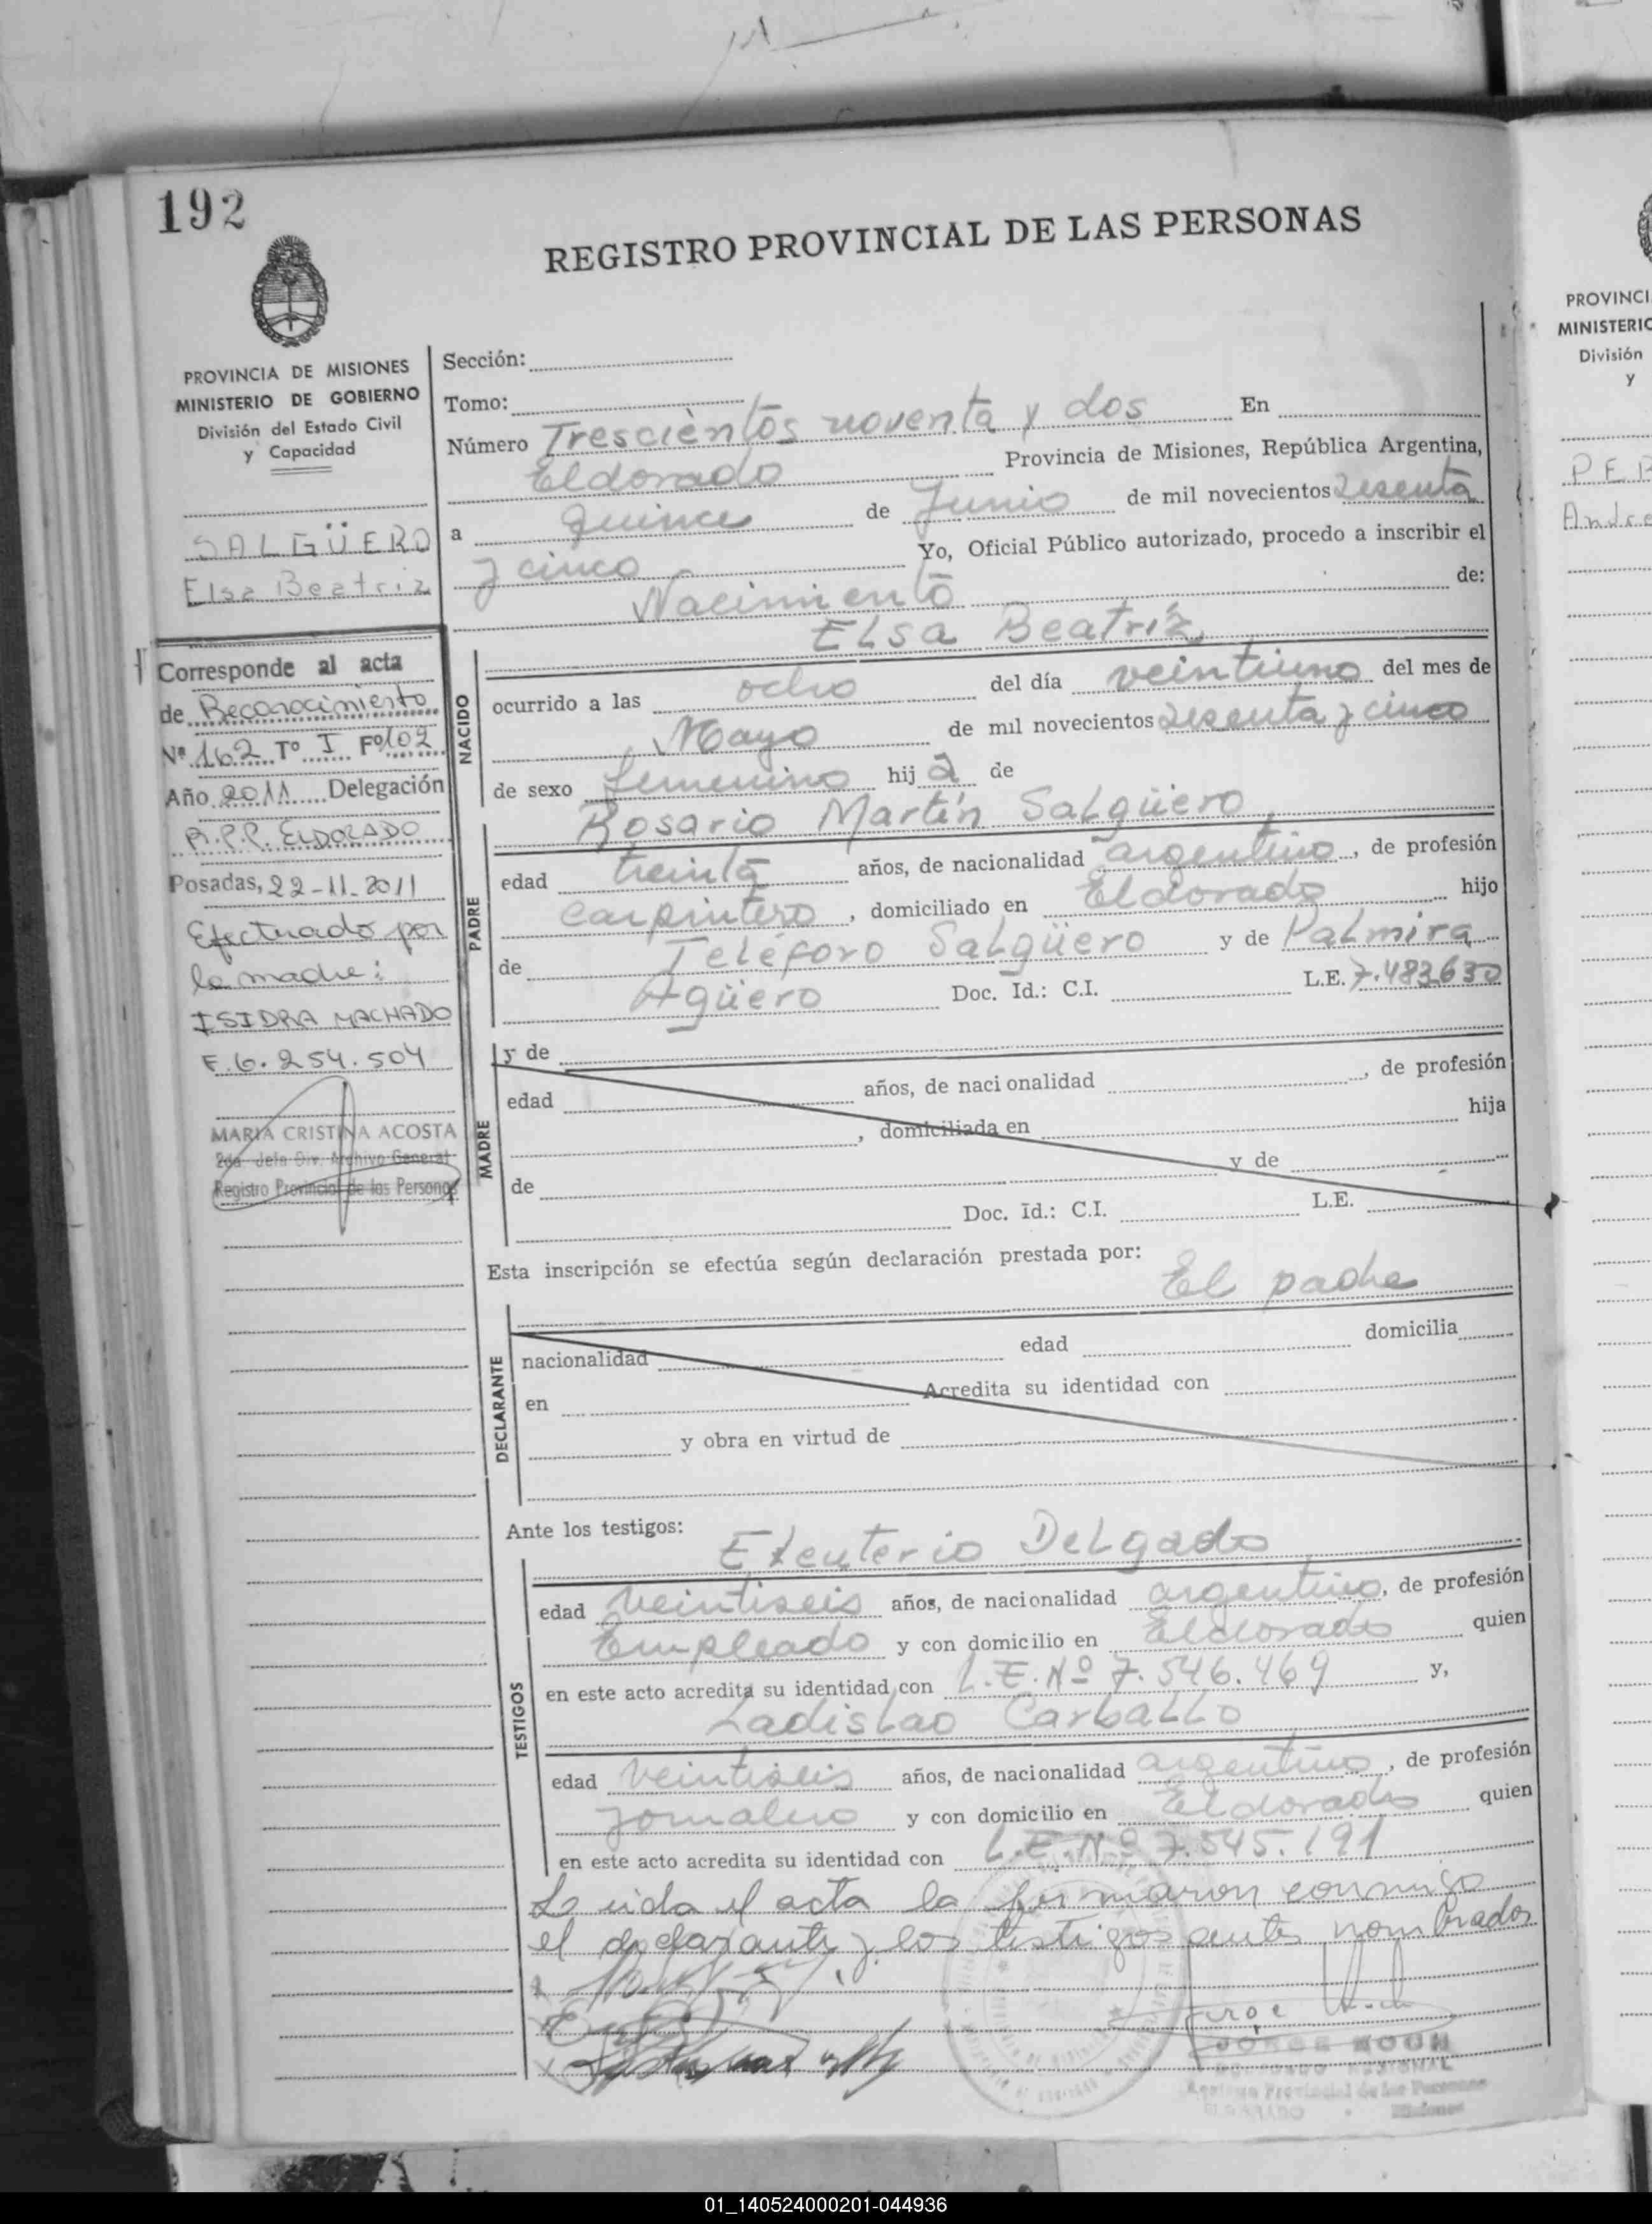 192
REGISTRO PROVINCIAL DE LAS PERSONAS
PROVINCIA DE MISIONES
MINISTERIO DE GOBIERNO
División del Estado Civil
y Capacidad
SALGÜERO
Elsa Beatriz
Corresponde al acta
de Reconocimiento
Nº 162 Tº I Fº 102
Año 2011 Delegación
R.P.P. ELDORADO
Posadas, 22-11-2011
Efectuado por
la madre:
ISIDRA MACHADO
F.6.254.504
MARIA CRISTINA ACOSTA
2da Jefa Div. Archivo General
Registro Provincial de las Personas
Sección:
Tomo:
Número Trescientos noventa y dos En
Eldorado Provincia de Misiones, República Argentina,
a quince de Junio de mil novecientos sesenta
y cinco Yo, Oficial Público autorizado, procedo a inscribir el
Nacimiento de:
ELsa Beatriz
NACIDO
ocurrido a las ocho del día veintiuno del mes de
Mayo de mil novecientos sesenta y cinco
de sexo femenino hij a de
Rosario Martín Salgüero
PADRE
edad treinta años, de nacionalidad argentino, de profesión
carpintero, domiciliado en Eldorado hijo
de Teléforo Salgüero y de Palmira
Agüero Doc. Id.: C.I. L.E. 7.483.630
MADRE
y de
edad años, de nacionalidad , de profesión
, domiciliada en hija
de y de
Doc. Id.: C.I. L.E.
Esta inscripción se efectúa según declaración prestada por:
El padre
DECLARANTE
nacionalidad edad domicilia
en Acredita su identidad con
y obra en virtud de
Ante los testigos:
Eleuterio Delgado
TESTIGOS
edad veintiseis años, de nacionalidad argentino, de profesión
Empleado y con domicilio en Eldorado quien
en este acto acredita su identidad con L.E. Nº 7.546.469 y,
Ladislao Carballo
edad veintiseis años, de nacionalidad argentino, de profesión
jornalero y con domicilio en Eldorado quien
en este acto acredita su identidad con L.E. Nº 7.545.191
Leida el acta la firmaron conmigo
el declarante y los testigos antes nombrados
JORGE KOCH
Registro Provincial de las Personas
ELDORADO - Misiones
PROVINCI
MINISTERIO
División
y
Andre
01_140524000201-044936